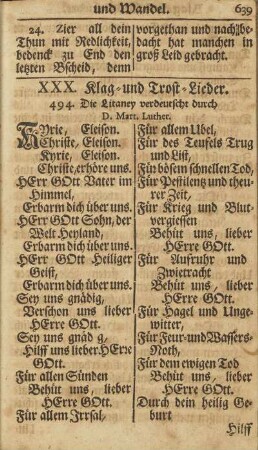 und Wandel. 639
24. Zier all dein
Thun mit Redlichkeit,
bedenck zu End den
letzten Bscheid, denn
vorgethan und nachbe-
dacht hat manchen in
groß Leid gebracht.
XXX. Klag- und Trost-Lieder.
494. Die Litaney verdeutscht durch
D. Mart. Luther.
KYrie, Eleison.
Christe, Eleison.
Kyrie, Eleison.
Christe, erhöre uns.
HErr GOtt Vater im
Himmel,
Erbarm dich über uns.
HErr GOtt Sohn, der
Welt Heyland,
Erbarm dich über uns.
HErr GOtt Heiliger
Geist,
Erbarm dich über uns.
Sey uns gnädig,
Verschon uns lieber
HErre GOtt.
Sey uns gnäd g,
Hilff uns lieber HErre
GOtt.
Für allen Sünden
Behüt uns, lieber
HErre GOtt.
Für allem Irrsal,
Für allem Ubel,
Für des Teufels Trug
und List,
Für bösem schnellen Tod,
Für Pestilentz und theu-
rer Zeit,
Für Krieg und Blut-
vergiessen
Behüt uns, lieber
HErre GOtt.
Für Aufruhr und
Zwietracht
Behüt uns, lieber
HErre GOtt.
Für Hagel und Unge-
witter,
Für Feur- und Wassers-
Noth,
Für dem ewigen Tod
Behüt uns, lieber
HErre GOtt.
Durch dein heilig Ge-
burt
Hilff